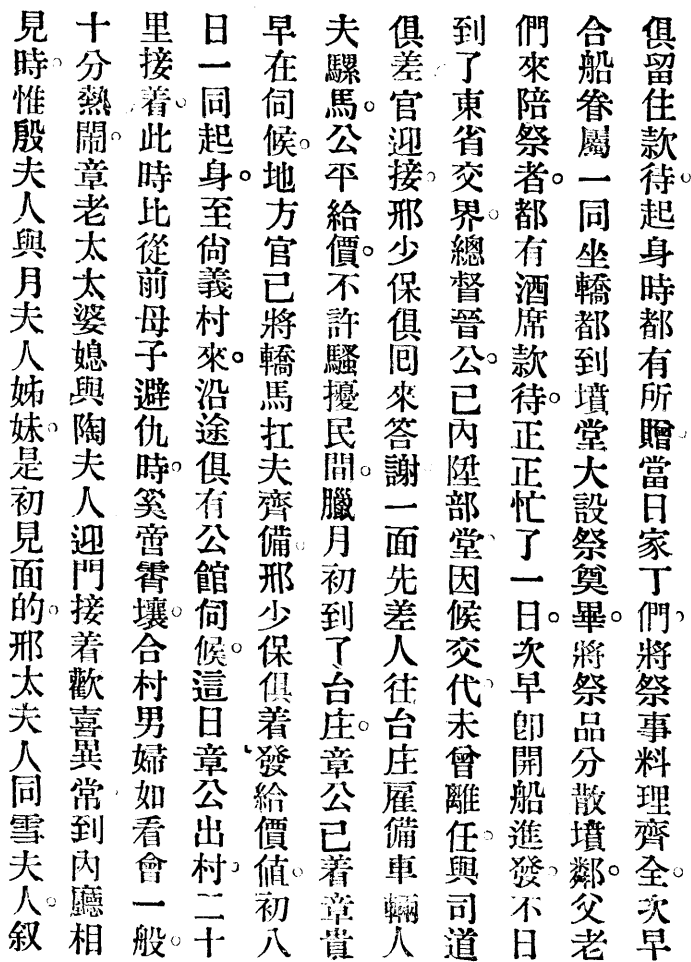 俱留住款待。起身時都有所贈。當日家丁們。將祭事料理齊全。次早
合船眷屬一同坐轎都到墳堂大設祭奠畢。將祭品分散墳鄰。父老
們來陪祭者。都有酒席款待。正正忙了一日。次早卽開船進發。不日
到了東省交界。總督晉公。已內陞部堂、因候交代。未曾離任。與司道
俱差官迎接。邢少保俱回來答謝一面先差人往台庄雇備車輛人
夫騾馬。公平給價。不許騷擾民間。臘月初到了台庄。章公已着章貴
早在伺候。地方官已將轎馬扛夫齊備。邢少保俱着發給價值。初八
日一同起身。至尙義村來。沿途俱有公館伺候。這日章公出村二十
里接着。此時比從前母子避仇時。奚啻霄壤。合村男婦如看會一般。
十分熱鬧。章老太太婆媳與陶夫人迎門接着歡喜異常到內廳相
見時。惟殷夫人與月夫人姊妹。是初見面的。邢太夫人同雪夫人。叙